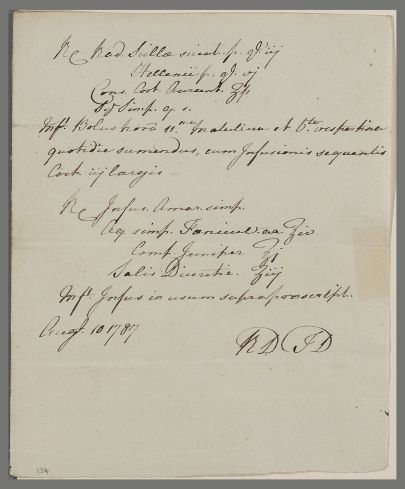 Rx Rad. Scillæ siccat. p. gr iij
Hellenii p. gr. vj
Cons. Cort. Aurant. ʒſs
Syr Simp. q. s.
Mft. Bolus horâ 11.ma matutina et 6.ta vespertina
quotidie sumendus, cum Infusionis sequentis
Coch. iij largis
Rx Infus. Amar. simp.
Aq. simp. Fœnicul. aa ℥iv
Comp. Juniper ℥j
Salis Diuretic. ʒiij
Mft. Infus in usum supra præscript.
Augt. 10 1787
RD TD
134